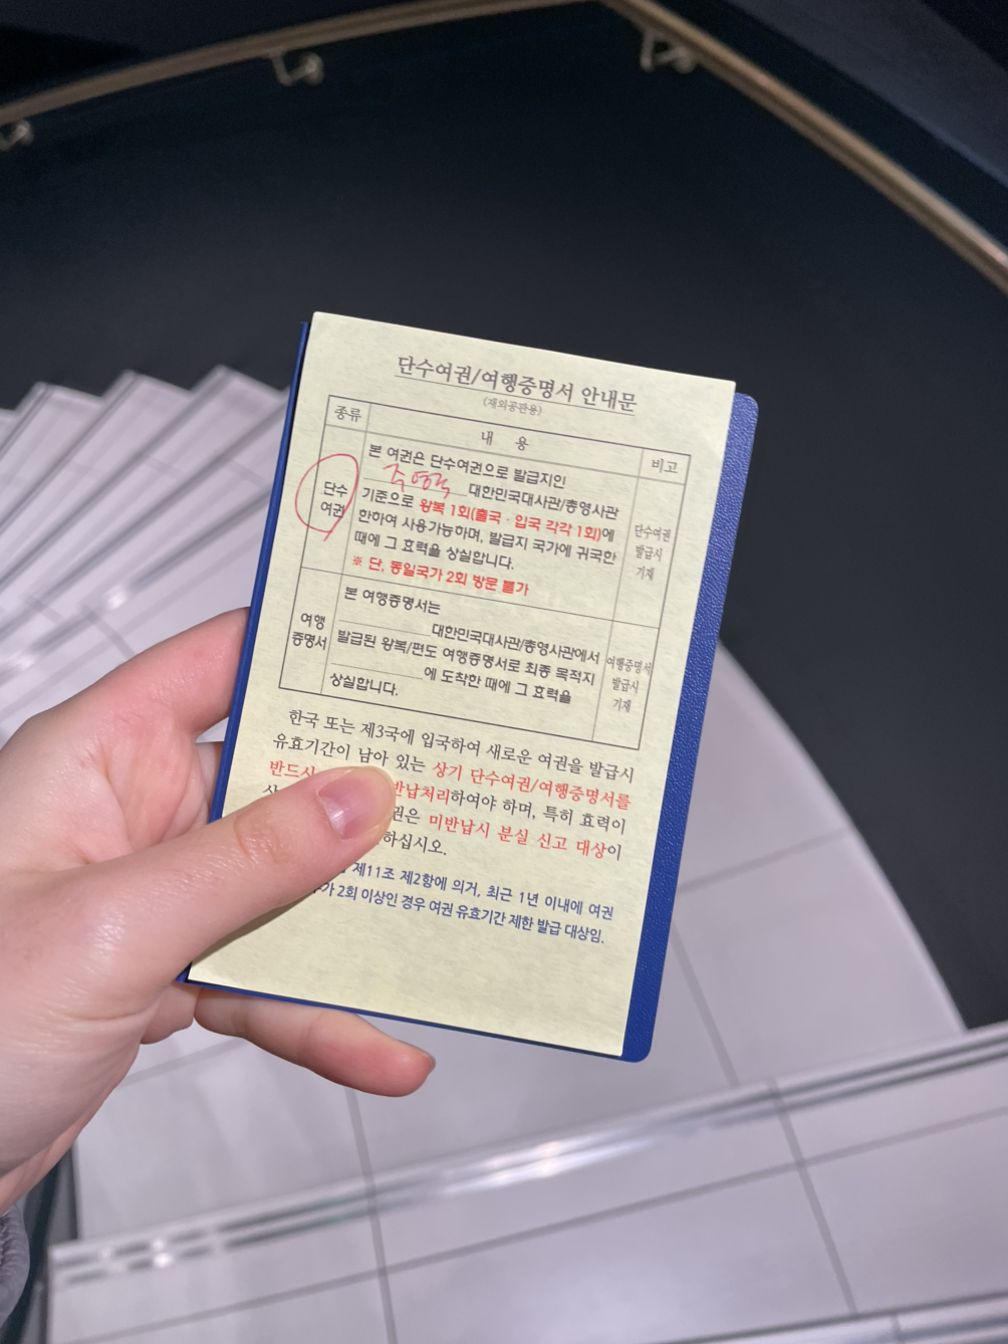 단수여권/여행증명서 안내문
(재외공관용)
종류 내 용 비고
단수
여권
본 여권은 단수여권으로 발급지인
주영국 대한민국대사관/총영사관
기준으로 왕복 1회(출국 · 입국 각각 1회)에
한하여 사용가능하며, 발급지 국가에 귀국한
때에 그 효력을 상실합니다.
※ 단, 동일국가 2회 방문 불가
단수여권
발급시
기재
여행
증명서
본 여행증명서는
대한민국대사관/총영사관에서
발급된 왕복/편도 여행증명서로 최종 목적지
에 도착한 때에 그 효력을
상실합니다.
여행증명서
발급시
기재
한국 또는 제3국에 입국하여 새로운 여권을 발급시
유효기간이 남아 있는 상기 단수여권/여행증명서를
반드시 반납처리하여야 하며, 특히 효력이
미반납시 분실 신고 대상이
제11조 제2항에 의거, 최근 1년 이내에 여권
2회 이상인 경우 여권 유효기간 제한 발급 대상임.